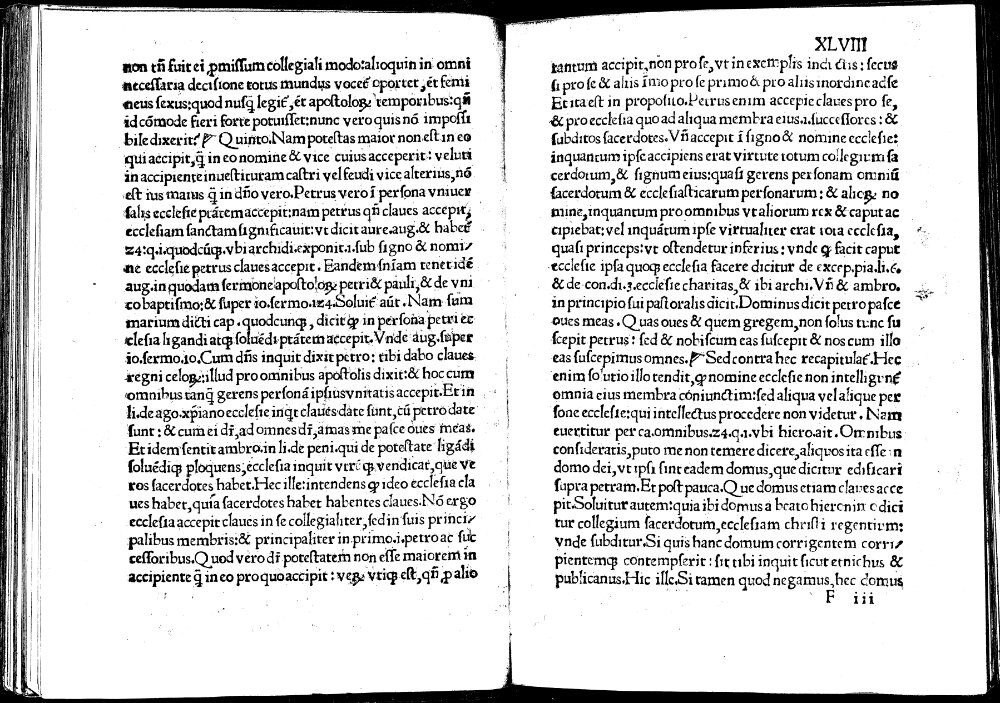 non tñ fuit ei ꝓmissum collegiali modo: alioquin in omni
necessaria decisione totus mundus vocet᷑ oportet, et femi
neus sexus: quod nusq̃ legit᷑, et apostoloꝝ temporibus: qñ
id cõmode fieri forte potuisset: nunc vero quis nõ impossi
bile dixerit?
Quinto. Nam potestas maior non est in eo
qui accipit, q̃ in eo nomine & vice cuius acceperit: veluti
in accipiente inuestituram castri vel feudi vice alterius, nõ
est ius maius q̃ in dño vero. Petrus vero ĩ persona vniuer
salis ecclesie ptãtem accepit: nam petrus qñ claues accepit,
ecclesiam sanctam significauit: vt dicit aure. aug. & habet᷑
24. q. i. quodcũqꝫ. vbi archidi. exponit. i. sub signo & nomi/
ne ecclesie petrus claues accepit. Eandem sñiam tenet idẽ
aug. in quodam sermone apostoloꝝ petri & pauli, & de vni
co baptismo: & super io. sermo. 124. Soluit᷑ aũt. Nam sum
marium dicti cap. quodcunqꝫ, dicit ꝙ in persona petri ec
clesia ligandi atqꝫ soluẽdi ptãtem accepit. Vnde aug. super
io. sermo. 10. Cum dñs inquit dixit petro: tibi dabo claues
regni celoꝝ: illud pro omnibus apostolis dixit: & hoc cum
omnibus tanq̃ gerens personã ipsius vnitatis accepit. Et in
li. de ago. xpĩano ecclesie inqt claues date sunt, cũ petro date
sunt: & cum ei dr̃, ad omnes dr̃, amas me pasce oues meas.
Et idem sentit ambro. in li. de peni. qui de potestate ligãdi
soluẽdiqꝫ ploquens, ecclesia inquit vtrũqꝫ vendicat, que ve
ros sacerdotes habet. Hec ille: intendens ꝙ ideo ecclesia cla
ues habet, quia sacerdotes habet habentes claues. Nõ ergo
ecclesia accepit claues in se collegialiter, sed in suis princi/
palibus membris: & principaliter in primo. i. petro ac suc
cessoribus. Quod vero dr̃ potestatem non esse maiorem in
accipiente q̃ in eo pro quo accipit: veꝝ vtiqꝫ est, qñ ꝓ alio
XLVIII
tantum accipit, non pro se, vt in exemplis indictis: secus
si pro se & aliis ĩmo pro se primo & pro aliis in ordine ad se
Et ita est in proposito. Petrus enim accepit claues pro se,
& pro ecclesia quo ad aliqua membra eius. i. successores: &
subditos sacerdotes. Vñ accepit ĩ signo & nomine ecclesie:
inquantum ipse accipiens erat virtute totum collegium sa
cerdotum, & signum eius: quasi gerens personam omniũ
sacerdotum & ecclesiasticarum personarum: & alioꝝ no
mine, inquantum pro omnibus vt aliorum rex & caput ac
cipiebat: vel inquãtum ipse virtualiter erat tota ecclesia,
quasi princeps: vt ostendetur inferius: vnde ꝙ facit caput
ecclesie ipsa quoqꝫ ecclesia facere dicitur de excep. pia. li. 6.
& de con. di. 3. ecclesie charitas, & ibi archi. Vñ & ambro.
in principio sui pastoralis dicit. Dominus dicit petro pasce
oues meas. Quas oues & quem gregem, non solus tunc su
scepit petrus: sed & nobiscum eas suscepit & nos cum illo
eas suscepimus omnes.
Sed contra hec recapitulat᷑. Hec
enim solutio illo tendit, ꝙ nomine ecclesie non intelligunt᷑
omnia eius membra coniunctim: sed aliqua vel alique per
sone ecclesie: qui intellectus procedere non videtur. Nam
euertitur per ca. omnibus. 24. q. 1. vbi hiero. ait. Omnibus
consideratis, puto me non temere dicere, aliquos ita esse in
domo dei, vt ipsi sint eadem domus, que dicitur edificari
supra petram. Et post pauca. Que domus etiam claues acce
pit. Soluitur autem: quia ibi domus a beato hieronimo dici
tur collegium sacerdotum, ecclesiam christi regentium:
vnde subditur. Si quis hanc domum corrigentem corri/
pientemqꝫ contempserit: sit tibi inquit sicut etnichus &
publicanus. Hic ille. Si tamen quod negamus, hec domus
F iii